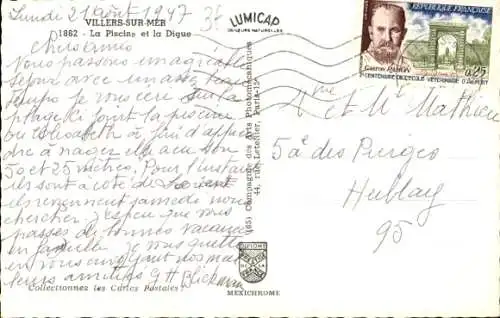 Lundi 21 août 1967
VILLERS-SUR-MER
1862 - La Piscine et la Digue
Chers amis
Nous passons un agréable
séjour avec un assez beau
temps. Je vous écris sur la
plage
où Elisabeth a fini d'appren
dre à nager elle a eu son
50 et 25 mètres. Pour l'instant
ils sont à côté de
ils reviennent samedi nous
chercher. J'espère que vous
passez de bonnes vacances
en famille. Je vous quitte
en vous envoyant nos meil
leurs amitiés G H
Collectionnez les Cartes Postales
LUMICAP
COULEURS NATURELLES
(65) Compagnie des Arts Photomécaniques
44, rue Letellier, Paris-15e
MEXICHROME
RÉPUBLIQUE FRANÇAISE
GASTON RAMON
CENTENAIRE DE L'ÉCOLE VÉTÉRINAIRE D'ALFORT
0,25
Mme et Mr Mathieu
5
Herblay
95